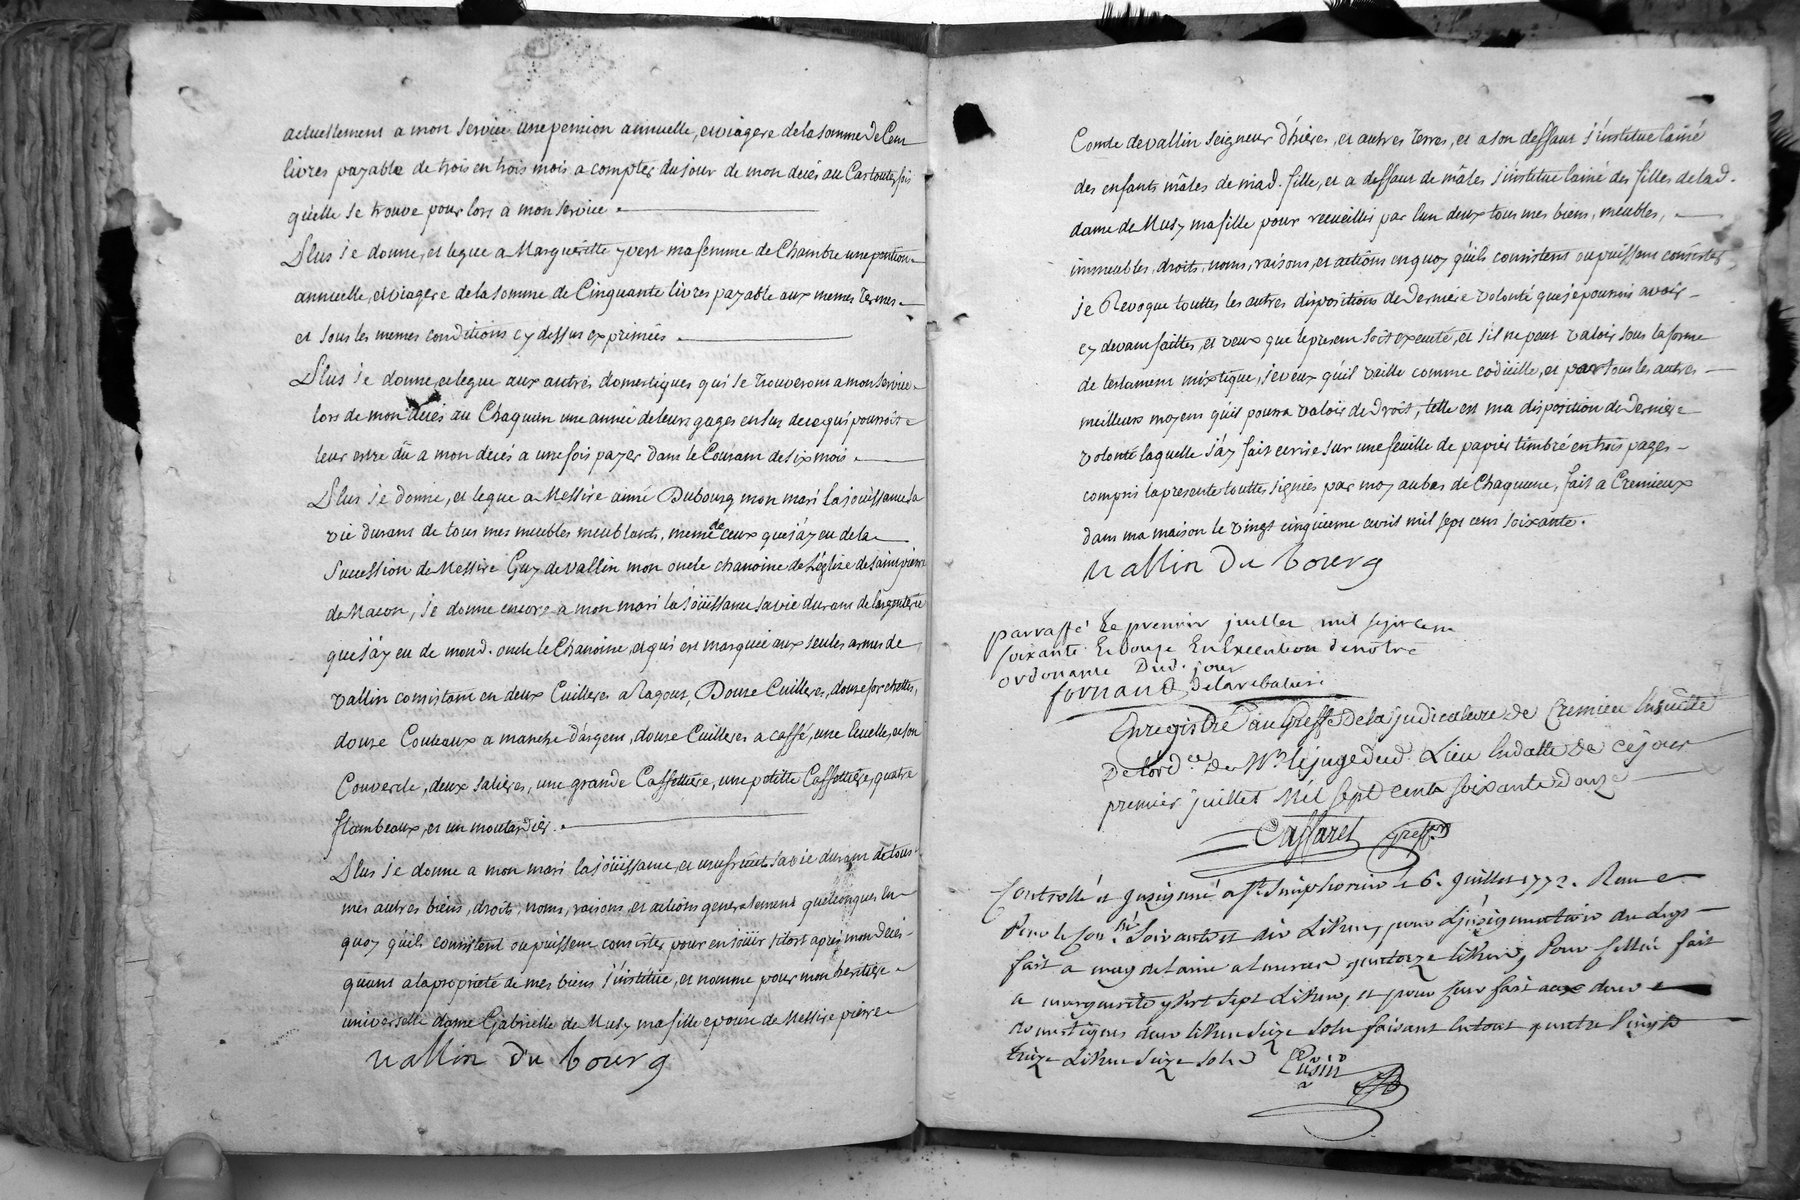 actuellement a mon service une pension annuelle, et viagere de la somme de Cent
livres payable de trois en trois mois a compter du jour de mon decés au Cas toutes fois
qu'elle se trouve pour lors a mon service.
Plus je donne, et legue a Marguerite yvert ma femme de Chambre une pention
annuelle, et viagere de la somme de Cinquante livres payable aux memes termes
et sous les memes conditions cy dessus exprimées.
Plus je donne, et legue aux autres domestiques qui se trouveront a mon service
lors de mon decés au Chaqu'un une année de leurs gages en sus de ce qui pourroit
leur estre dû a mon decés a une fois payer dans le Courant de six mois.
Plus je donne, et legue a Messire aimé Dubourg mon mari la joüissance sa
vie durant de tous mes meubles meublants, meme de ceux que j'ay eu de la
succession de Messire Guy de vallin mon oncle chanoine de L'église de saint pierre
de Macon, je donne encore a mon mari la joüissance sa vie durant de l'argenterie
que j'ay eu de mond. oncle le Chanoine, et qui est marquée aux seules armes de
vallin consistant en deux Cuilleres a Ragout, Douse Cuilleres, douse forchettes,
douse Couteaux a manche d'argent, douse Cuilleres a caffé, une Ecuelle, et son
Couvercle, deux salieres, une grande Caffettiere, une petitte Caffettiere, quatre
flambeaux, et un moutardier.
Plus je donne a mon mari la joüissance, et usufruit sa vie durant de tous
mes autres biens, droits, noms, raisons, et actions generalement quelconques en
quoy qu'ils consistent ou puissent consister pour en joüir sitost après mon decés
quant a la propriété de mes biens j'institue, et nomme pour mon heritiere
universelle dame Gabrielle de Musy ma fille epouse de Messire pierre
vallin du bourg
Comte de vallin seigneur d'hières, et autres terres, et a son deffaut j'institue l'ainé
des enfants mâles de mad. fille, et a deffaut de mâles j'institue l'ainé des filles de lad.
dame de Musy ma fille pour recueillir par l'un deux tous mes biens, meubles,
immeubles, droits, noms, raisons, et actions en quoy qu'ils consistent ou puissent consister
je Revoque touttes les autres dispositions de derniere volonté que je pourrois avoir
cy devant faittes, et veux que le present soit executé, et s'il ne peut valoir sous la forme
de testament mixtique, je veux qu'il vaille comme codicille, et par tous les autres
meilleurs moyens qu'il pourra valoir de droit, telle est ma disposition de derniere
volonté laquelle j'ay fait ecrire sur une feuille de papier timbré en trois pages
compris la presente touttes signées par moy au bas de Chaqueune, fait a Cremieux
dans ma maison le vingt cinquieme avril mil sept cent soixante.
vallin du bourg
parraffé Le premier juillet mil sept cent
soixante Et douze En Execution de notre
ordonance Dud. jour
fornand Delarebatiere
Enregistré au Greffe de la judicature de Cremieu Ensuitte
De lord.ce de Mr. le juge dud. Lieu En datte de ce jour
premier juillet Mil sept cents soixante douze
Caffarel greff.er
Controllé et Insinué a St. Simphorien le 6. Juillet 1772. Reçu
Pour le Con.lle Soixante et dix Livres, pour L'insinuation du Legs
fait a magdelaine quatorze livres, Pour celluy fait
a marguerite yvert sept Livres, et pour ceux fait aux deux
domestiques deux livres seize sols faisant En tout quatre Vingts
treize Livres seize sols